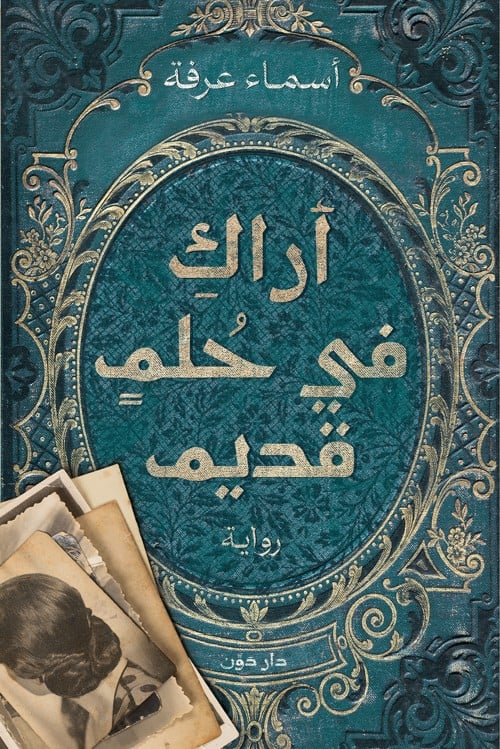 أسماء عرفة
أراكِ
في حُلمٍ
قديم
رواية
دار دَوِّن